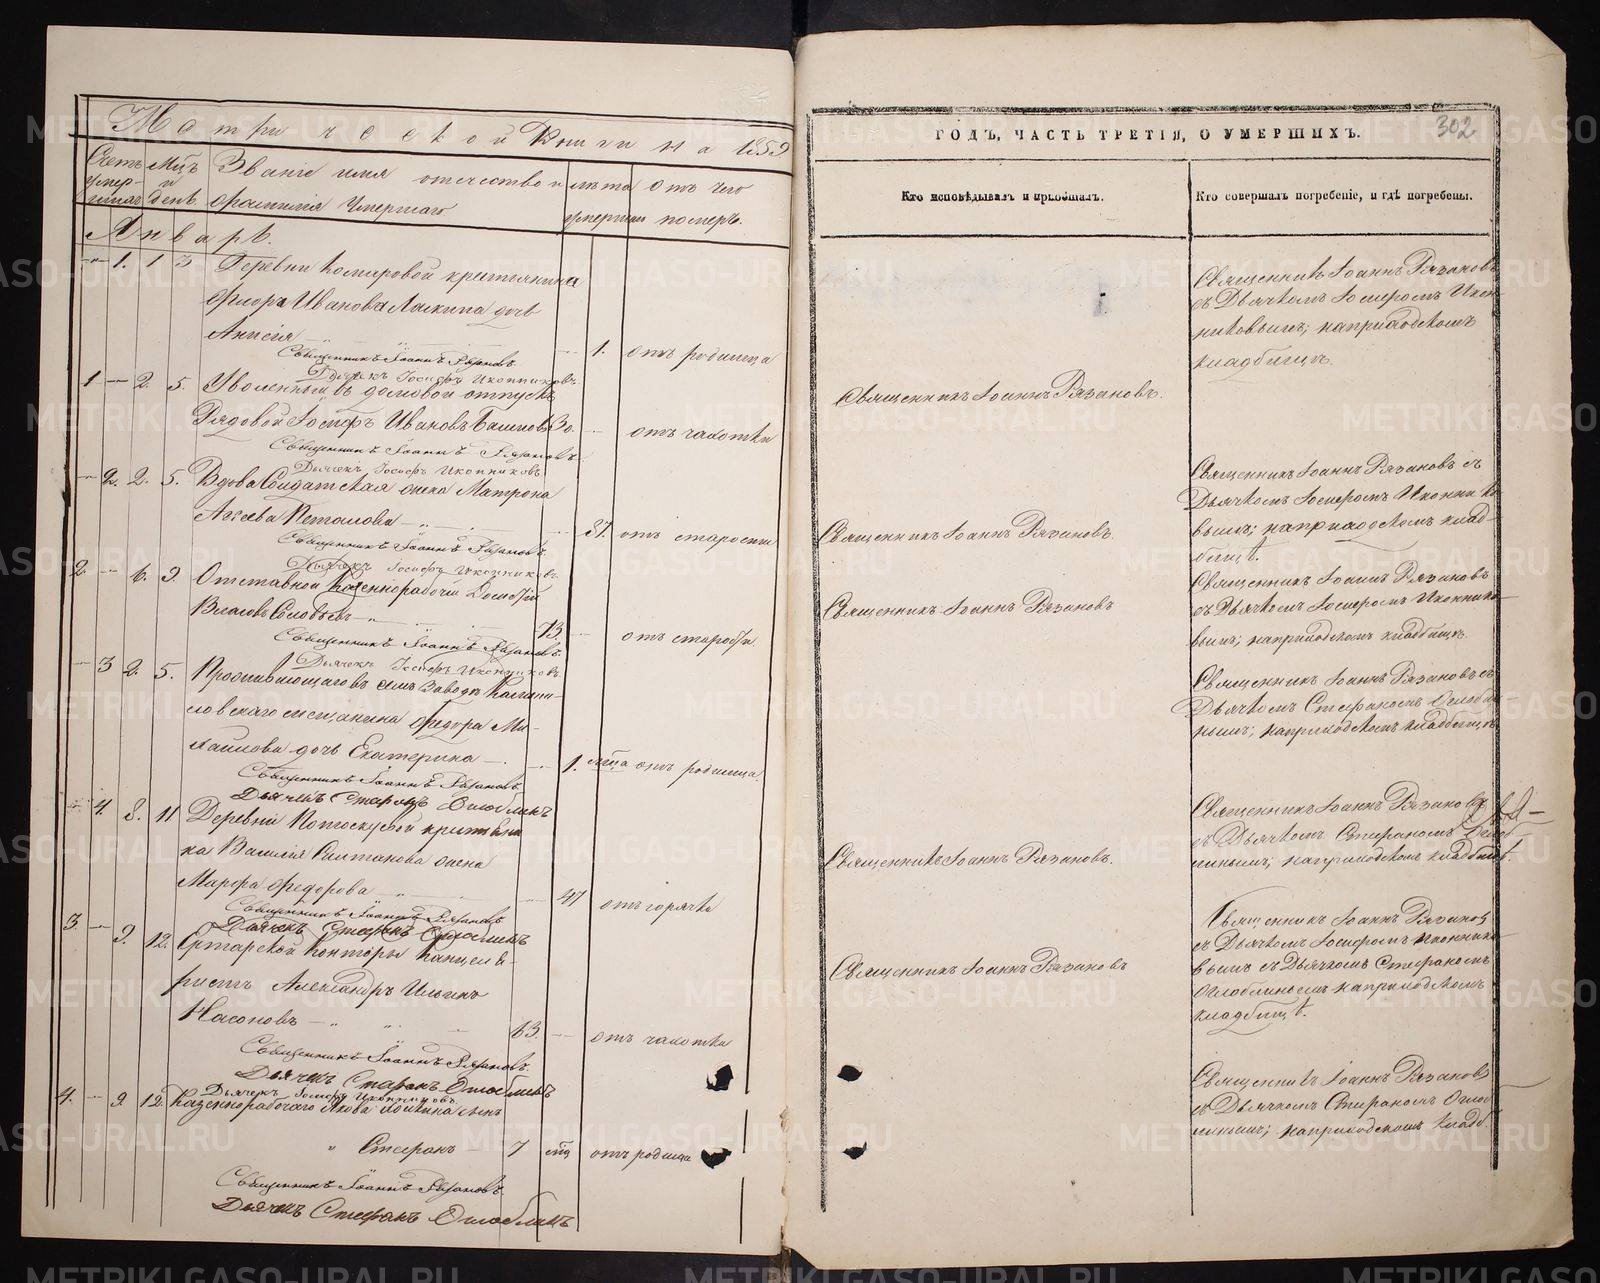 Метрической Книги на 1859
Счетъ умер- Мцъ и день Званіе имя отчество и фамилія Умершаго
лѣта умершаго Отъ чего померъ.
Январь.
1. 1 3 Деревни Комаровой крестьянина
Флора Иванова Ласкина дочь
Анисія 1. отъ родимца
Священникъ Іоаннъ Рязановъ
Дьячекъ Іосифъ Иконниковъ
1 — 2. 5. Уволенный въ домовой отпускъ
Рядовой Іосифъ Ивановъ 30. отъ чахотки
Священникъ Іоаннъ Рязановъ
Дьячекъ Іосифъ Иконниковъ
2. 2. 5. Вдова Солдатская жена Матрона
отъ старости
Священникъ Іоаннъ Рязановъ
Дьячекъ Іосифъ Иконниковъ
2. — 6. 9. Отставной Казеннорабочій
Власовъ Соловьевъ 73. отъ старости
Священникъ Іоаннъ Рязановъ
Дьячекъ Іосифъ Иконниковъ
3 2. 5. Проживающаго въ семъ Заводѣ
ловскаго мещанина Федора Ми-
хайлова дочь Екатерина 1. мца отъ родимца
Священникъ Іоаннъ Рязановъ
Дьячекъ Стефанъ Оглоблинъ
4. 8. 11 Деревни крестьяни
на Василія жена
Марфа Федорова 47 отъ горячки
Священникъ Іоаннъ Рязановъ
Дьячекъ Стефанъ Оглоблинъ
3. — 9. 12. Конторы Канцеля-
ристъ Александръ Ильинъ
Насоновъ 63. отъ чахотки
Священникъ Іоаннъ Рязановъ
Дьячекъ Стефанъ Оглоблинъ
Дьячекъ Іосифъ Иконниковъ
4. — 9. 12. Казеннорабочаго Якова сынъ
Стефанъ 7 мцъ отъ родимца
Священникъ Іоаннъ Рязановъ
Дьячекъ Стефанъ Оглоблинъ
302
ГОДЪ, ЧАСТЬ ТРЕТІЯ, О УМЕРШИХЪ.
Кто исповѣдывалъ и пріобщалъ.
Кто совершалъ погребеніе, и гдѣ погребены.
Священникъ Іоаннъ Рязановъ
съ Дьячкомъ Іосифомъ Икон-
никовымъ; на приходскомъ
кладбищѣ.
Священникъ Іоаннъ Рязановъ.
Священникъ Іоаннъ Рязановъ съ
Дьячкомъ Іосифомъ Иконнико
вымъ; на приходскомъ клад-
бищѣ.
Священникъ Іоаннъ Рязановъ.
Священникъ Іоаннъ Рязановъ
съ Дьячкомъ Іосифомъ Иконнико-
вымъ; на приходскомъ кладбищѣ.
Священникъ Іоаннъ Рязановъ
Священникъ Іоаннъ Рязановъ съ
Дьячкомъ Стефаномъ Оглобли
нымъ; на приходскомъ кладбищѣ
Священникъ Іоаннъ Рязановъ
съ Дьячкомъ Стефаномъ Оглоб
линымъ; на приходскомъ кладбищѣ.
Священникъ Іоаннъ Рязановъ.
Священникъ Іоаннъ Рязановъ
съ Дьячкомъ Іосифомъ Иконнико-
вымъ съ Дьячкомъ Стефаномъ
Оглоблинымъ на приходскомъ
кладбищѣ.
Священникъ Іоаннъ Рязановъ
Священникъ Іоаннъ Рязановъ
съ Дьячкомъ Стефаномъ Оглоб
линымъ; на приходскомъ кладб.
METRIKI.GASO-URAL.RU